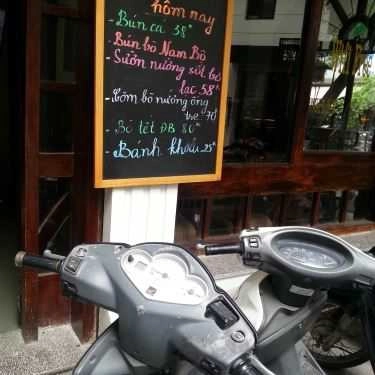 hôm nay
- Bún cá 58ᴷ
- Bún bò Nam Bộ
- Sườn nướng sốt bơ
lạc 58ᴷ
- Tôm bò nướng ống
tre 70ᴷ
- Bò tét ĐB 80ᴷ
- Bánh khoái 25ᴷ